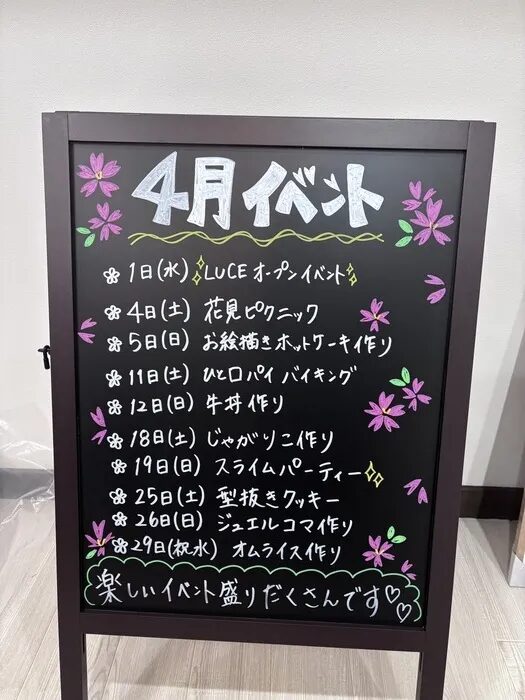 4月イベント
1日(水) LUCE オープンイベント
4日(土) 花見ピクニック
5日(日) お絵描きホットケーキ作り
11日(土) ひと口パイ バイキング
12日(日) 牛丼作り
18日(土) じゃがりこ作り
19日(日) スライムパーティー
25日(土) 型抜きクッキー
26日(日) ジュエルコマ作り
29日(祝水) オムライス作り
楽しいイベント盛りだくさんです♡♡